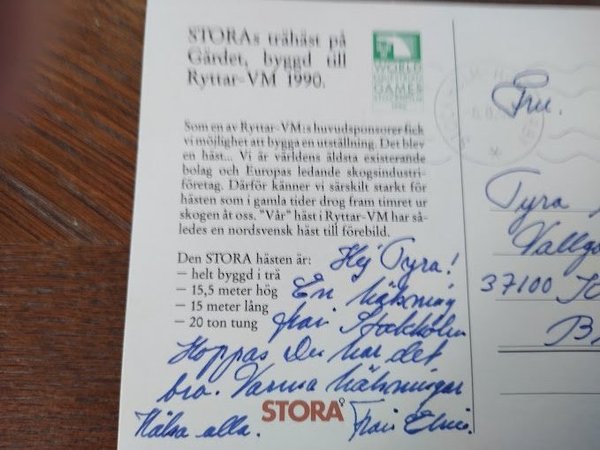 STORAs trähäst på
Gärdet, byggd till
Ryttar-VM 1990.
WORLD
EQUESTRIAN
GAMES
STOCKHOLM
1990
Som en av Ryttar-VM:s huvudsponsorer fick
vi möjlighet att bygga en utställning. Det blev
en häst... Vi är världens äldsta existerande
bolag och Europas ledande skogsindustri-
företag. Därför känner vi särskilt starkt för
hästen som i gamla tider drog fram timret ur
skogen åt oss. "Vår" häst i Ryttar-VM har så-
ledes en nordsvensk häst till förebild.
Den STORA hästen är:
– helt byggd i trä
– 15,5 meter hög
– 15 meter lång
– 20 ton tung
Hej Tyra!
En hälsning
från Stockholm
Hoppas Du har det
bra. Varma hälsningar
Hälsa alla. från
STORA
Fru.
Tyra
Vallg
37100